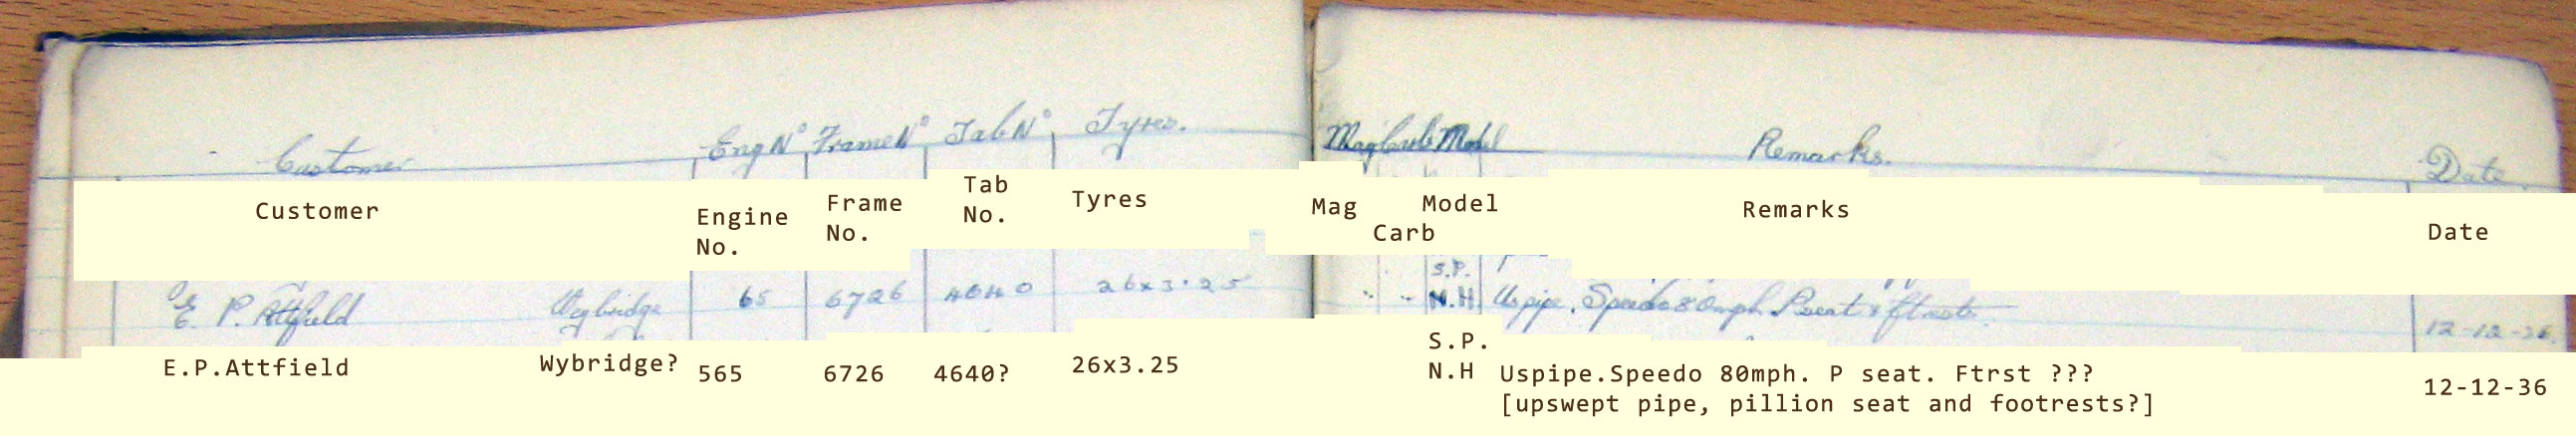 Customer Eng Nº Frame Nº Tab Nº Tyres. Mag Carb Model Remarks. Date
Customer Engine No. Frame No. Tab No. Tyres Mag Carb Model Remarks Date
S.P.
E. P. Attfield Weybridge 65 6726 4640 26x3.25 N.H. Us pipe. Speedo 80mph. P seat & ftrests. 12-12-36.
S.P.
E.P.Attfield Wybridge? 565 6726 4640? 26x3.25 N.H Uspipe.Speedo 80mph. P seat. Ftrst ???
[upswept pipe, pillion seat and footrests?] 12-12-36